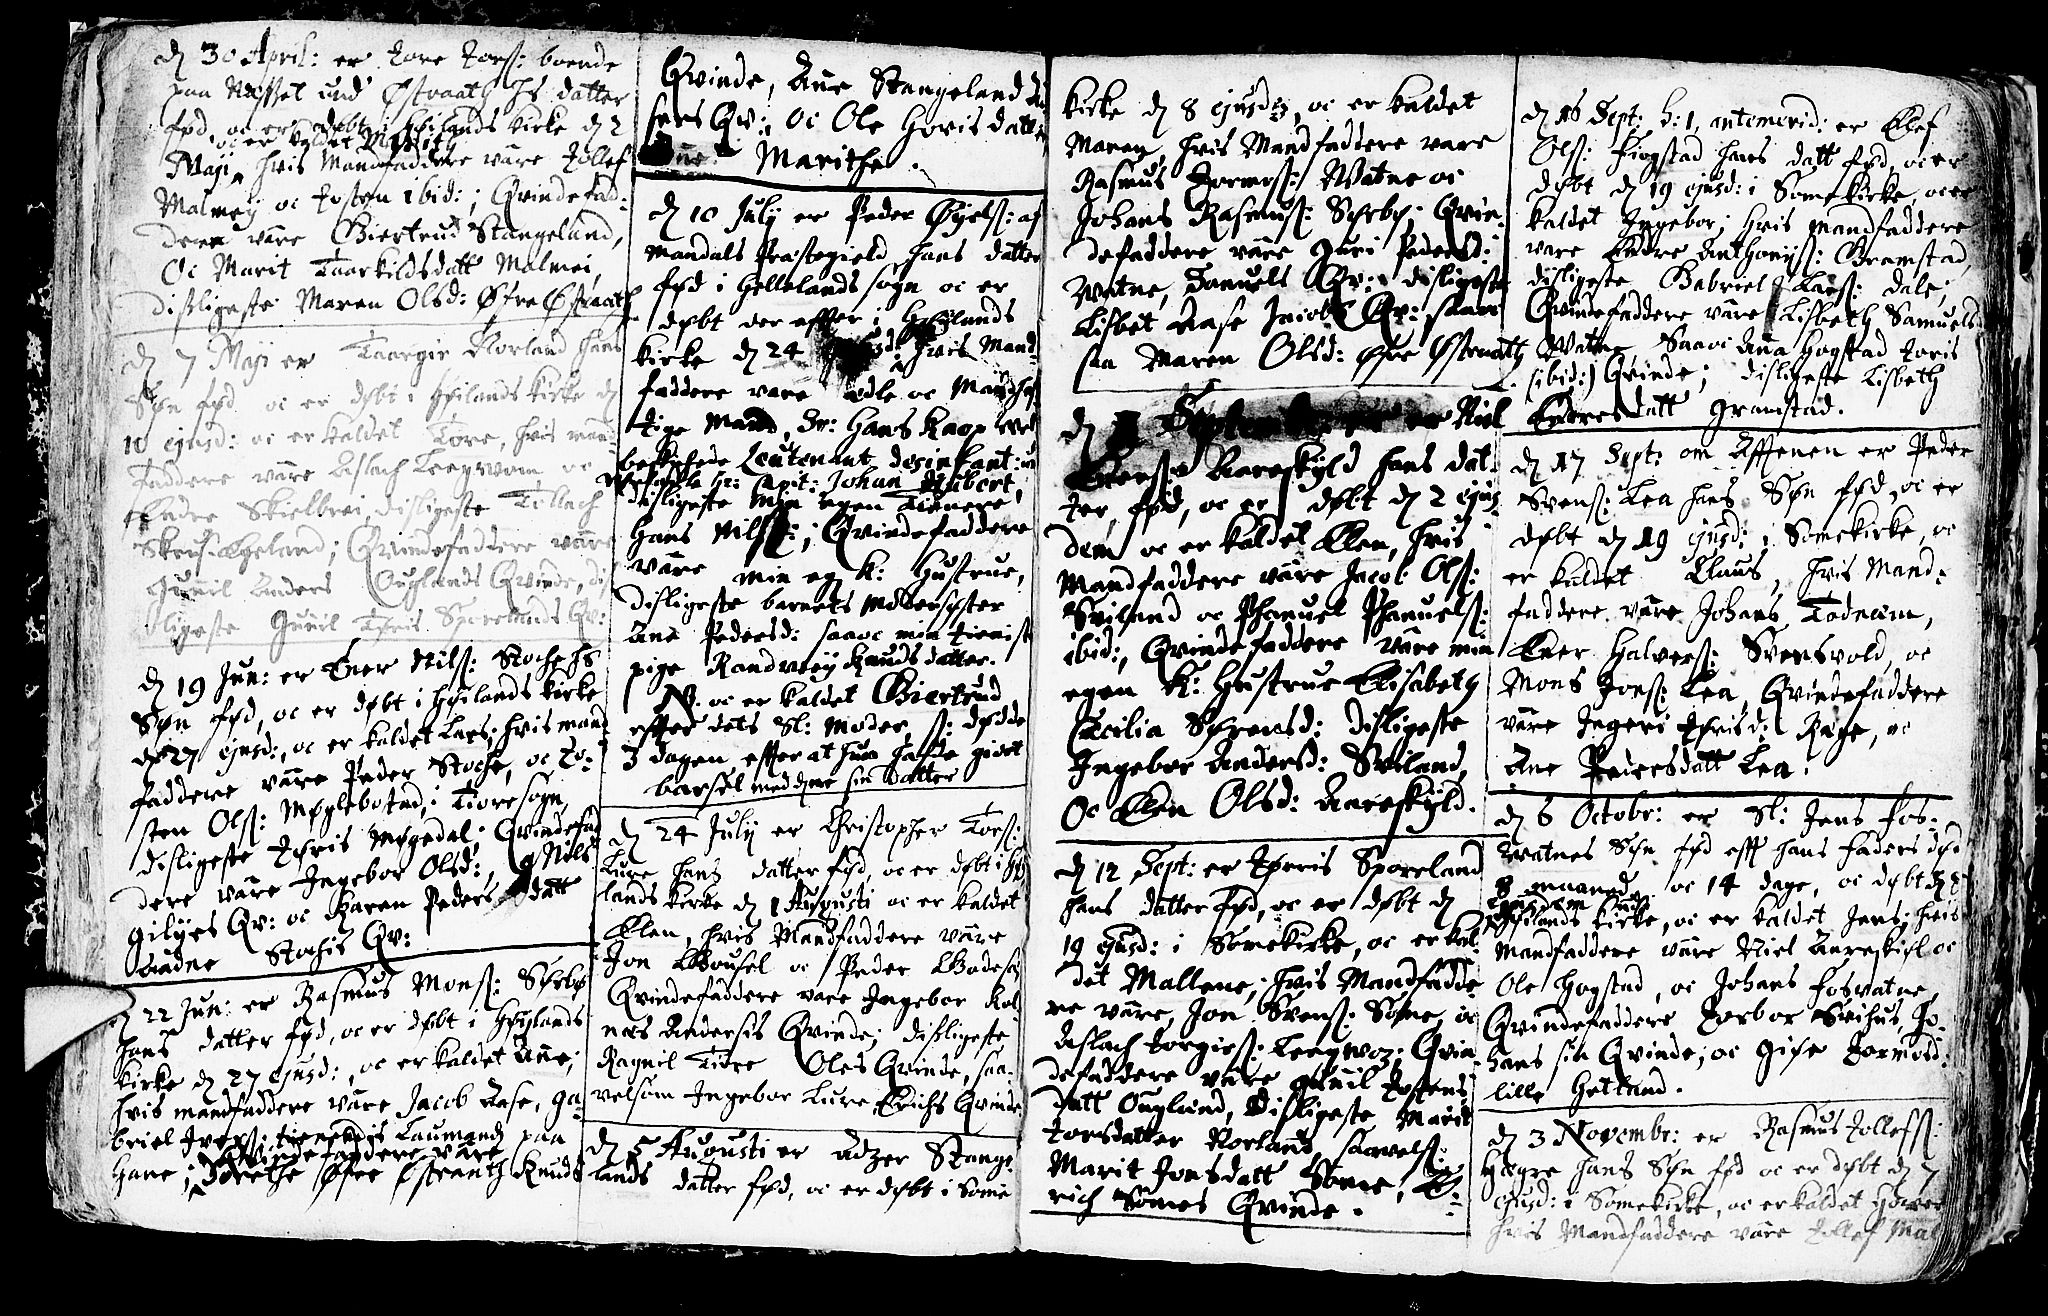 D 30 April: er Tore Torß: boende
paa Næsset und Østraat hs datter
fød, oc er døbt i Høilands kirke d 2
oc er kaldet Marith
Maji, hvis Mandfaddere vare Tollef
Malmeÿ oc Tosten ibid:; Qvindefad:
dere vare Giertrud Stangeland,
Oc Marit Taarkildsdatt Malmei,
disligeste Maren Olsd: Øfre Østraath.
D 7 Maji er Taargir Norland hans
Søn fød oc er døbt i Høilands kirke d
10 ejusd: oc er kaldet Tore, hvis man-
faddere vare Aslach Leegwam oc
Endre Skielbrei, disligeste Tollach
Skeus. Egeland; Qvindefaddere vare
Gunnil Anders Ouglands Qvinde, di
sligeste Gunil Thoris Sporelands Qv:
D 19 Jun: er Einer Nilß: Stoche hs
Søn fød, oc er døbt i Høilands kirke
d 27 ejusd:, oc er kaldet Lars; hvis mand
faddere vare Peder Stoche, oc To-
sten Olß: Møglebostad, i Tioresogn,
disligeste Thoris Møgedal; Qvindefad
dere vare Ingebor Olsd:, Nils
Giljes Qv: oc Karen Peders datt
Audne Stochis Qv:
D 22 Jun: er Rasmus Monß: Sørbø
hans datter fød, oc er døbt i Høylands
kirke d 27 ejusd:, oc er kaldet Ane;
hvis mandfaddere vare Jacob Aase, Ga-
briel Iverß: tienendis Laumand paa
Qvindefaddere vare
Hane; Dorethe Øfre Østraath Knuds
Qvinde, Ane Stangeland Au
sens Qv: Oc Ole Hovis datter
Marithe.
D 10 July er Peder Øÿelß: af
Mandals Præstegield hans datter
fød i Hellelands sogn oc er
døbt der effter i Høilands
kirke d 24 hvis Mand-
faddere vare ædle oc Mandhaf
tige Mand, Sr: Hans Kaap vel
beskichede Leutenant desinfant: und
Johan Hubert,
disligeste Min egen Tienere
Hans Nilß:; Qvindefaddere
vare min eg. k: Hustrue,
disligeste barnets Modersøster
Ane Pedersd: saaoc min tieniste
pige Randveÿ Knuds datter.
N. oc er kaldet Giertrud
effter dets Sl: Moder, ß: døde
3 dagen effter at hun hafde giort
barsel med denne sin datter
D 24 July er Christopher Torß:
Lure hans datter fød, oc er døbt i Høi
lands kirke d 1 Augusti oc er kaldet
Elen, hvis Mandfaddere vare
Jon Wousel oc Peder
Qvindefaddere vare Ingebor Kol
næs Andersis Qvinde; disligeste
Ragnil Tidre Oles Qvinde, saa-
velsom Ingebor Lure Erichs Qvinde
D 5 Augusti er Adzer Stange-
lands datter fød, oc er døbt i Some
kirke d 8 ejusd:, oc er kaldet
Maren, hvis Mandfaddere vare
Rasmus Tormoß: Watne oc
Johans Rasmusß: Sørbø; Qvin-
defaddere vare Guri Pedersd:
Watne, Samuels Qv: disligeste
Lisbet Aase Jacobs Qv: saaoc
saa Maren Olsd: Øfre Østraath
D 1 Septembr er Niel
Einerß: Aareskyld hans dat-
ter, fød, oc er døbt d 2 ejus
dem oc er kaldet Elen, hvis
Mandfaddere vare Jacob Olß:
Sviland oc Phanuel Phanuelß:
ibid:, Qvindefaddere vare min
egen K: Hustrue Elisabeth
Cæcilia Sørensd: disligeste
Ingebor Andersd: Sviland,
Oc Elen Olsd: Aareskyld.
D 12 Sept: er Thoris Sporeland
hans datter fød, oc er døbt d
19 ejusd: i Somekirke, oc er kal-
det Mallene; hvis Mandfadde-
re vare, Jon Svenß: Some, oc
Aslach Torgirß: Leegwoz; Qvin
defaddere vare Gunnil Tostens
datt Ouglund, Disligeste Marit
Torsdatter Norland, saavelß:
Marit Jonsdatt Some, E-
rich Somes Qvinde.
D 16 Sept: h: 1, antemerid: er Elef
Olß: Fiogstad hans datt fød, oc er
døbt d 19 ejusd: i Somekirke, oc er
kaldet Ingebor; hvis mandfaddere
vare Endre Anthonÿß: Gramstad,
disligeste Gabriel Larß: Dale;
Qvindefaddere vare Lisbeth Samuels
Watne Saaoc Ana Hogstad Joris
(ibid:) Qvinde; disligeste Lisbeth
Endresdatt Gramstad.
D 17 Sept: om Afftenen er Peder
Svenß: Lea hans Søn fød, oc er
døbt d 19 ejusd: i Somekirke, oc
er kaldet Claus, hvis Mand-
faddere vare Johans Todnæm,
Einer Halverß: Svensvold, oc
Mons Jonß: Lea, Qvindefaddere
vare Ingeri Thorisd: Rage, oc
Ane Pedersdatt Lea.
D 6 Octobr: er Sl: Jens Fos-
watnes Søn fød efft hans Faders død
3 maaned oc 14 dage, oc døbt d 8
Høilands kirke, oc er kaldet Jens; hvis
Mandfaddere vare Niel Aareskiol oc
Ole Hogstad, oc Johans Foswatne,
Qvindefaddere Torbor Svihus, Jo-
hans sin Qvinde; oc Gise Tormosd:
lille Hetland.
D 3 Novembr: er Rasmus Tollefß:
Høgre hans Søn fød oc er døbt d 7
ejusd: i Somekirke, oc er kaldet
hvis Mandfaddere vare Tollef Mal